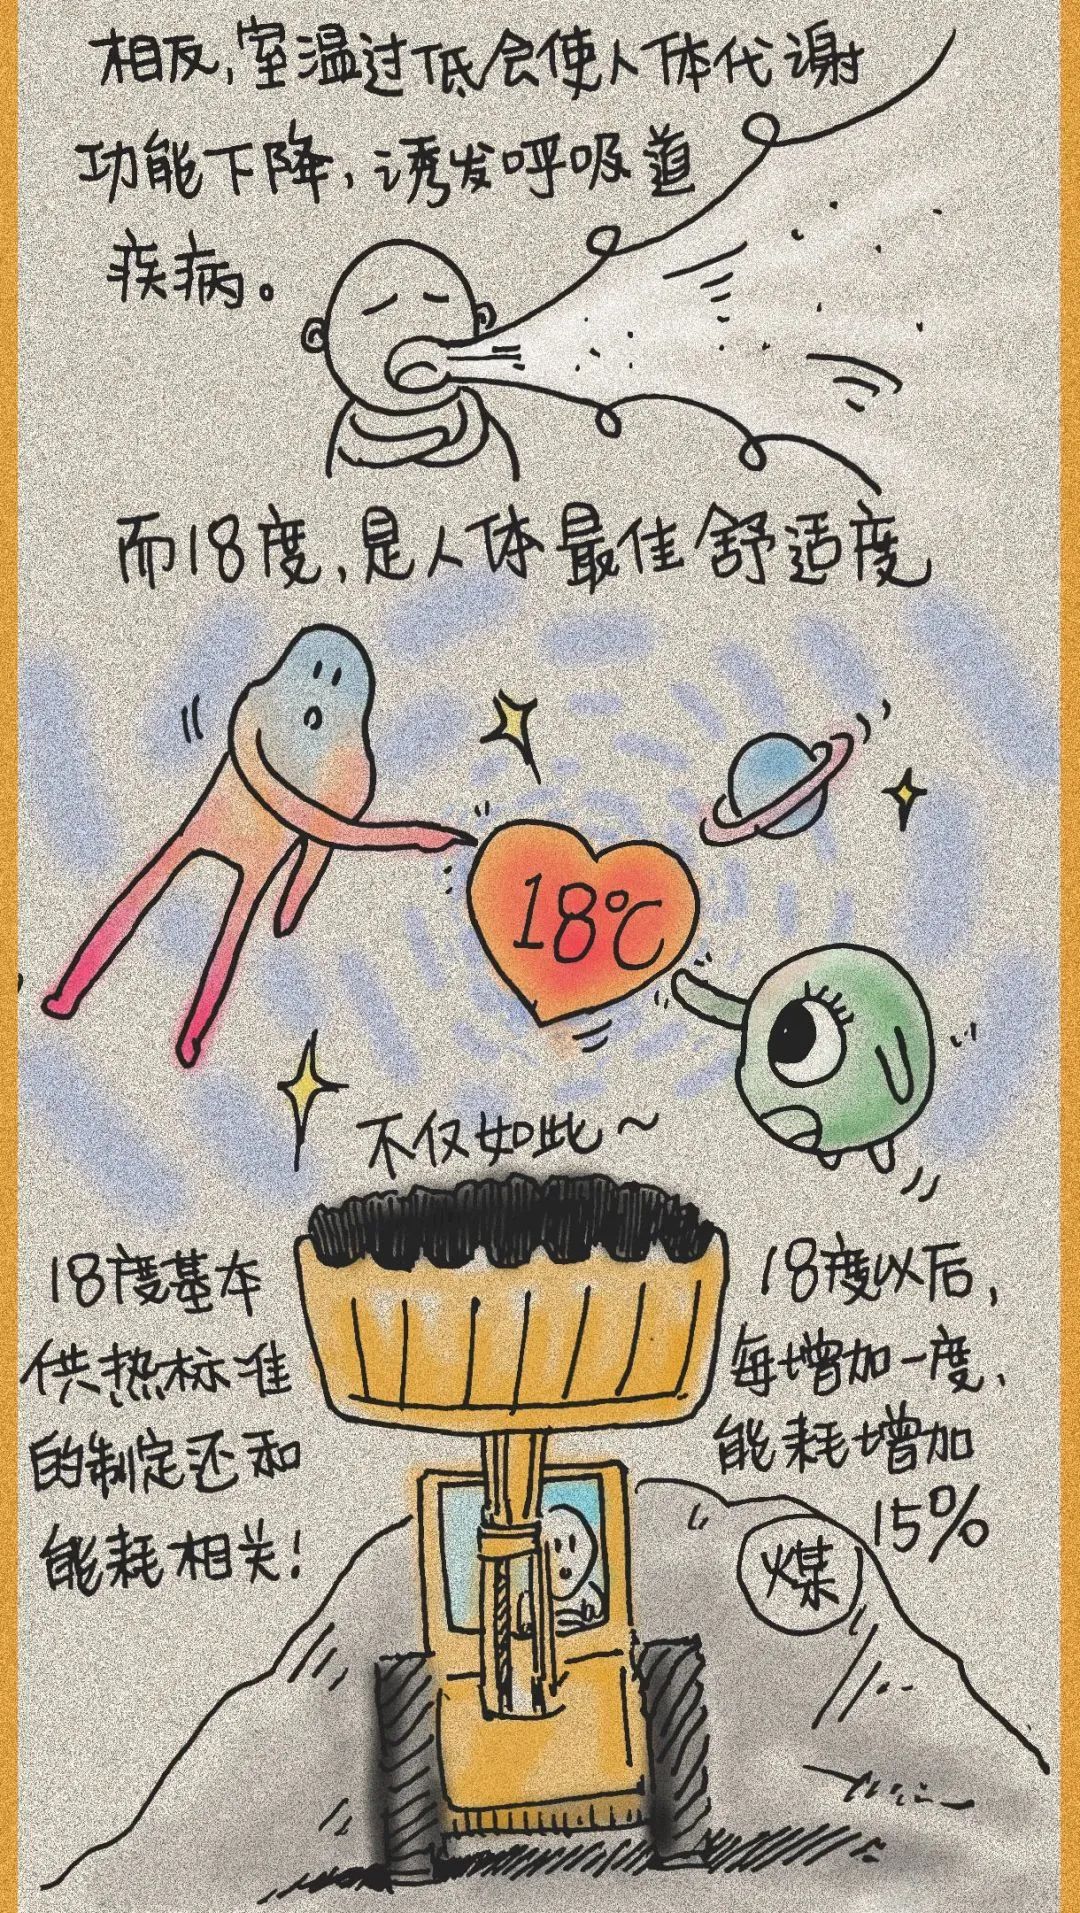 相反，室温过低会使人体代谢
功能下降，诱发呼吸道
疾病。
而18度，是人体最佳舒适度
18℃
不仅如此～
18度基本
供热标准
的制定还和
能耗相关！
18度以后，
每增加一度、
能耗增加
15%
煤